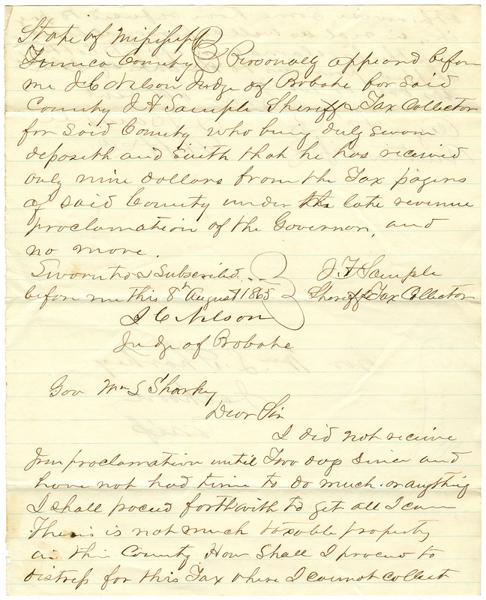 State of Mississippi
Tunica County Personally appeard before
me J C Nelson Judge of Probate for Said
County J F Sample Sheriff & Tax Collector
for Said County who being duly sworn
deposeth and Saith that he has received
only nine dollars from the Tax payers
of said County under the late revenue
proclamation of the Governor, and
no more.
Sworn to & Subscribed J F Sample
before me this 8th August 1865 Sheriff & Tax Collector
J C Nelson
Judge of Probate
Gov Wm L Sharkey
Dear Sir
I did not receive
your proclamation until Two days Since and
have not had time to do much or anything
I shall proceed forthwith to get all I can
There is not much taxable property
in this County How Shall I proceed to
distress for this Tax where I cannot collect